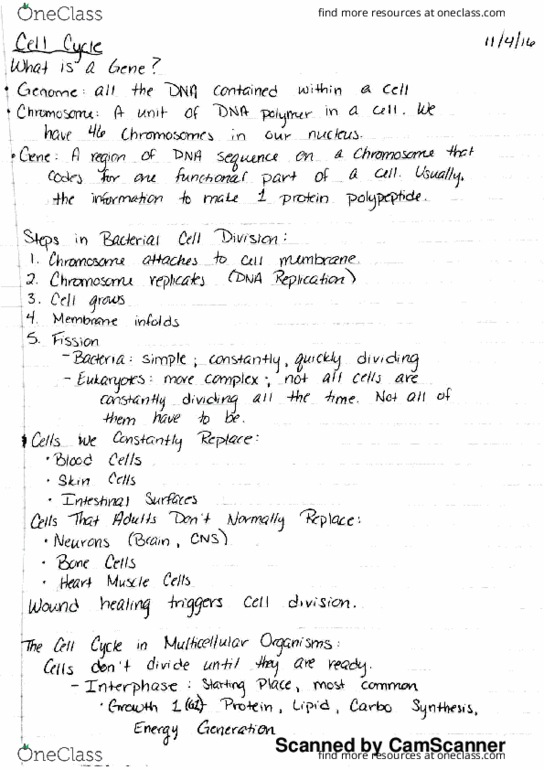 OneClass
find more resources at oneclass.com
Cell Cycle
11/4/16
What is a Gene?
• Genome: all the DNA contained within a cell
• Chromosome: A unit of DNA polymer in a cell. We
have 46 Chromosomes in our nucleus.
• Gene: A region of DNA sequence on a chromosome that
codes for one functional part of a cell. Usually,
the information to make 1 protein polypeptide.
Steps in Bacterial Cell Division:
1. Chromosome attaches to cell membrane
2. Chromosome replicates (DNA Replication)
3. Cell grows
4. Membrane infolds
5. Fission
- Bacteria: simple; constantly, quickly dividing
- Eukaryotes: more complex; not all cells are
constantly dividing all the time. Not all of
them have to be.
• Cells We Constantly Replace:
• Blood Cells
• Skin Cells
• Intestinal Surfaces
Cells That Adults Don't Normally Replace:
• Neurons (Brain, CNS)
• Bone Cells
• Heart Muscle Cells
Wound healing triggers cell division.
The Cell Cycle in Multicellular Organisms:
Cells don't divide until they are ready.
- Interphase: Starting Place, most common
• Growth 1 (G1) Protein, Lipid, Carbo Synthesis,
Energy Generation
Scanned by CamScanner
OneClass
find more resources at oneclass.com